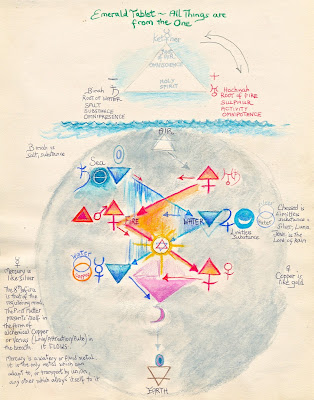 Emerald Tablet ~ All Things are
from the One
Kether
AIR
OMNISCIENCE
HOLY
SPIRIT
Binah
Root of WATER
SALT
SUBSTANCE
OMNIPRESENCE
Hochmah
Root of FIRE
SULPHUR
ACTIVITY
OMNIPOTENCE
AIR
Binah is
Salt, substance
Sea
FIRE
WATER
Limitless
Substance
Water
Chesed is
limitless
substance =
Silver, Luna
Jove, is the
Lord of Rain
Water
Copper
Mercury is
like silver
The 8th
is that of the
The First Matter
presents itself in
the form of
alchemical Copper
or Venus
the breath. it FLOWS.
Copper is
like gold
Mercury is a watery or fluid metal
it is the only metal which can
adapt to, or transport by union,
any other which allays itself to it
EARTH